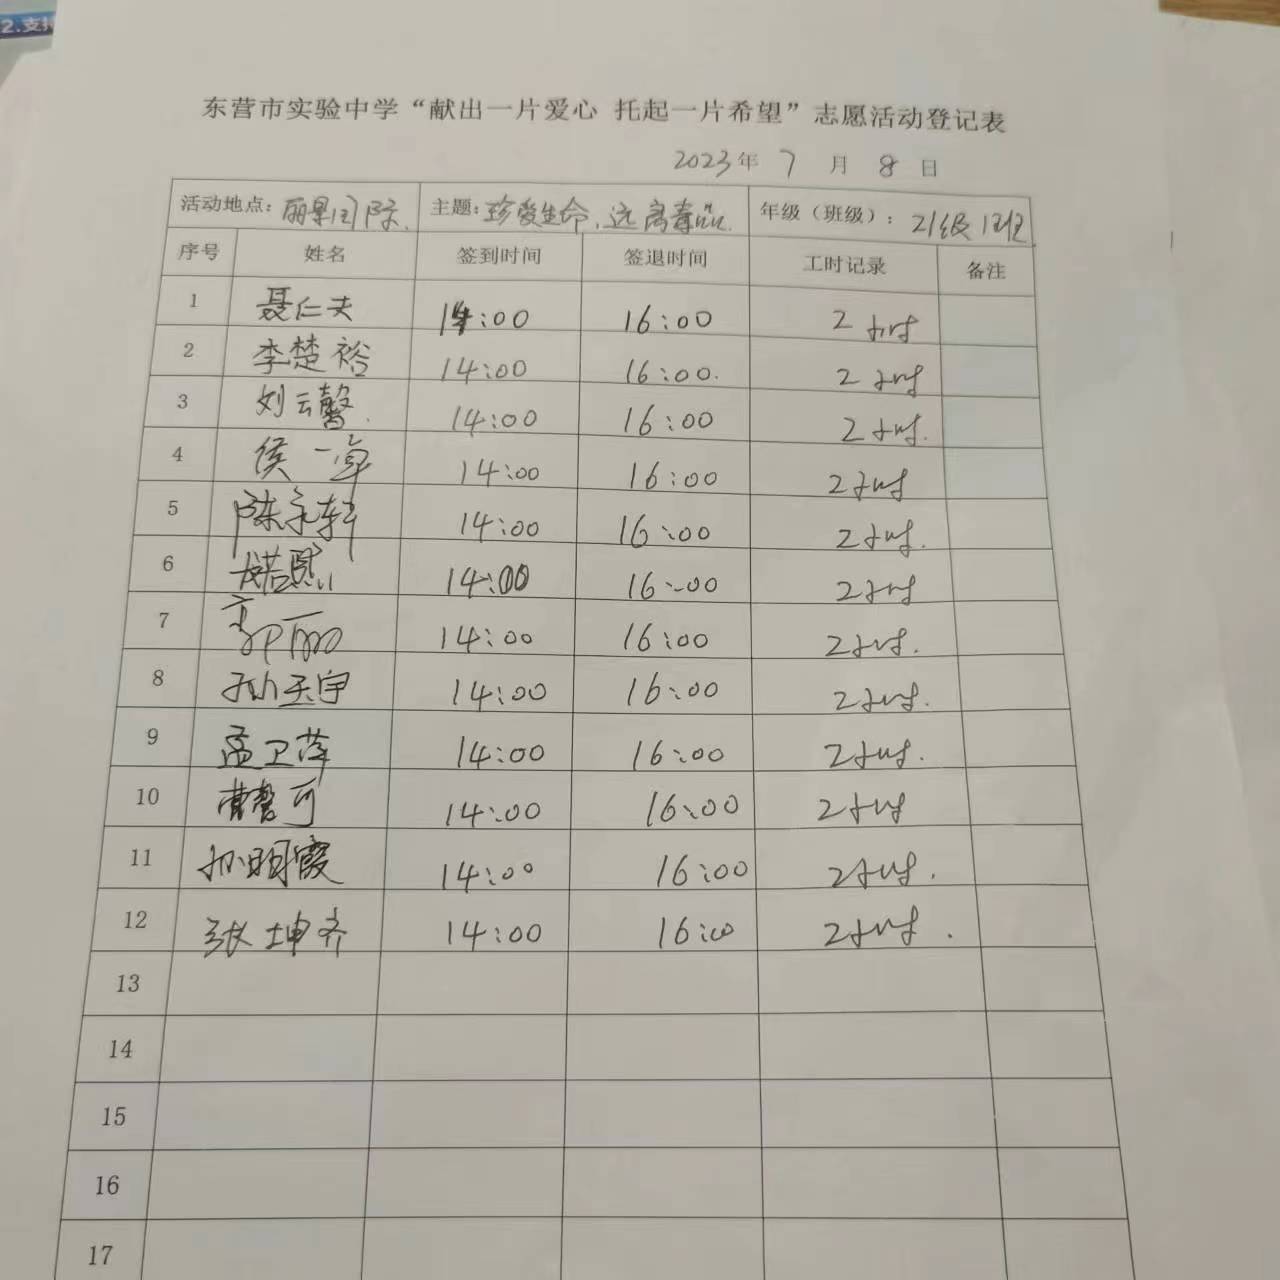 2.支持
东营市实验中学“献出一片爱心 托起一片希望”志愿活动登记表
2023年 7 月 8 日
活动地点: 丽景国际. 主题: 珍爱生命,远离毒品. 年级（班级）: 21级1班
序号 姓名 签到时间 签退时间 工时记录 备注
1 聂仁夫 14:00 16:00 2小时
2 李楚裕 14:00 16:00. 2小时
3 刘云馨. 14:00 16:00 2小时.
4 侯一卓 14:00 16:00 2小时
5 14:00 16:00 2小时.
6 14:00 16:00 2小时
7 14:00 16:00 2小时.
8 孙玉宇 14:00 16:00 2小时.
9 孟卫萍 14:00 16:00 2小时.
10 14:00 16:00 2小时
11 孙明霞 14:00 16:00 2小时.
12 张坤齐 14:00 16:00 2小时.
13
14
15
16
17